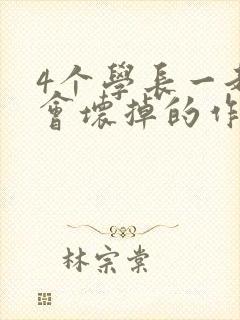 4个學長一
會壞掉的作
林宗棠